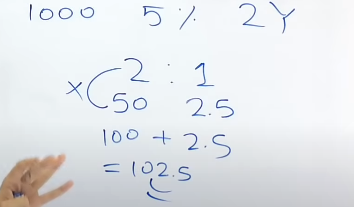 1000 5% 2Y
2 : 1
× ( 50 2.5
100 + 2.5
= 102.5